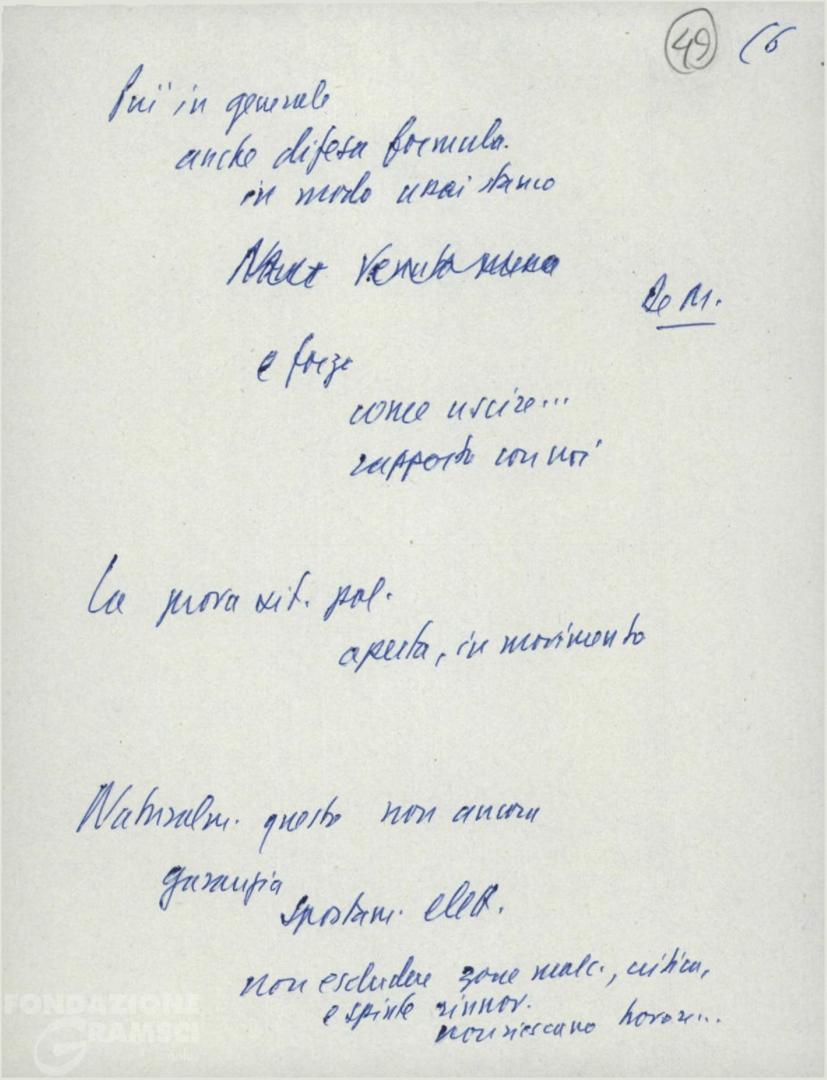 49 (6
Più in generale
anche difesa formula.
in modo assai stanco
De M.
e forze
come uscire...
rapporto con noi
La nuova sit. pol.
aperta, in movimento
Naturalm. questo non ancora
garanzia
spostam. elett.
non escludere zone malc., critica,
e spinte rinnov.
non riescano trovare...
FONDAZIONE
GRAMSCI